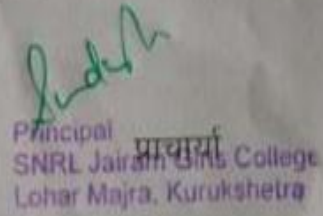 Principal
प्राचार्या
SNRL Jairam Girls College
Lohar Majra, Kurukshetra